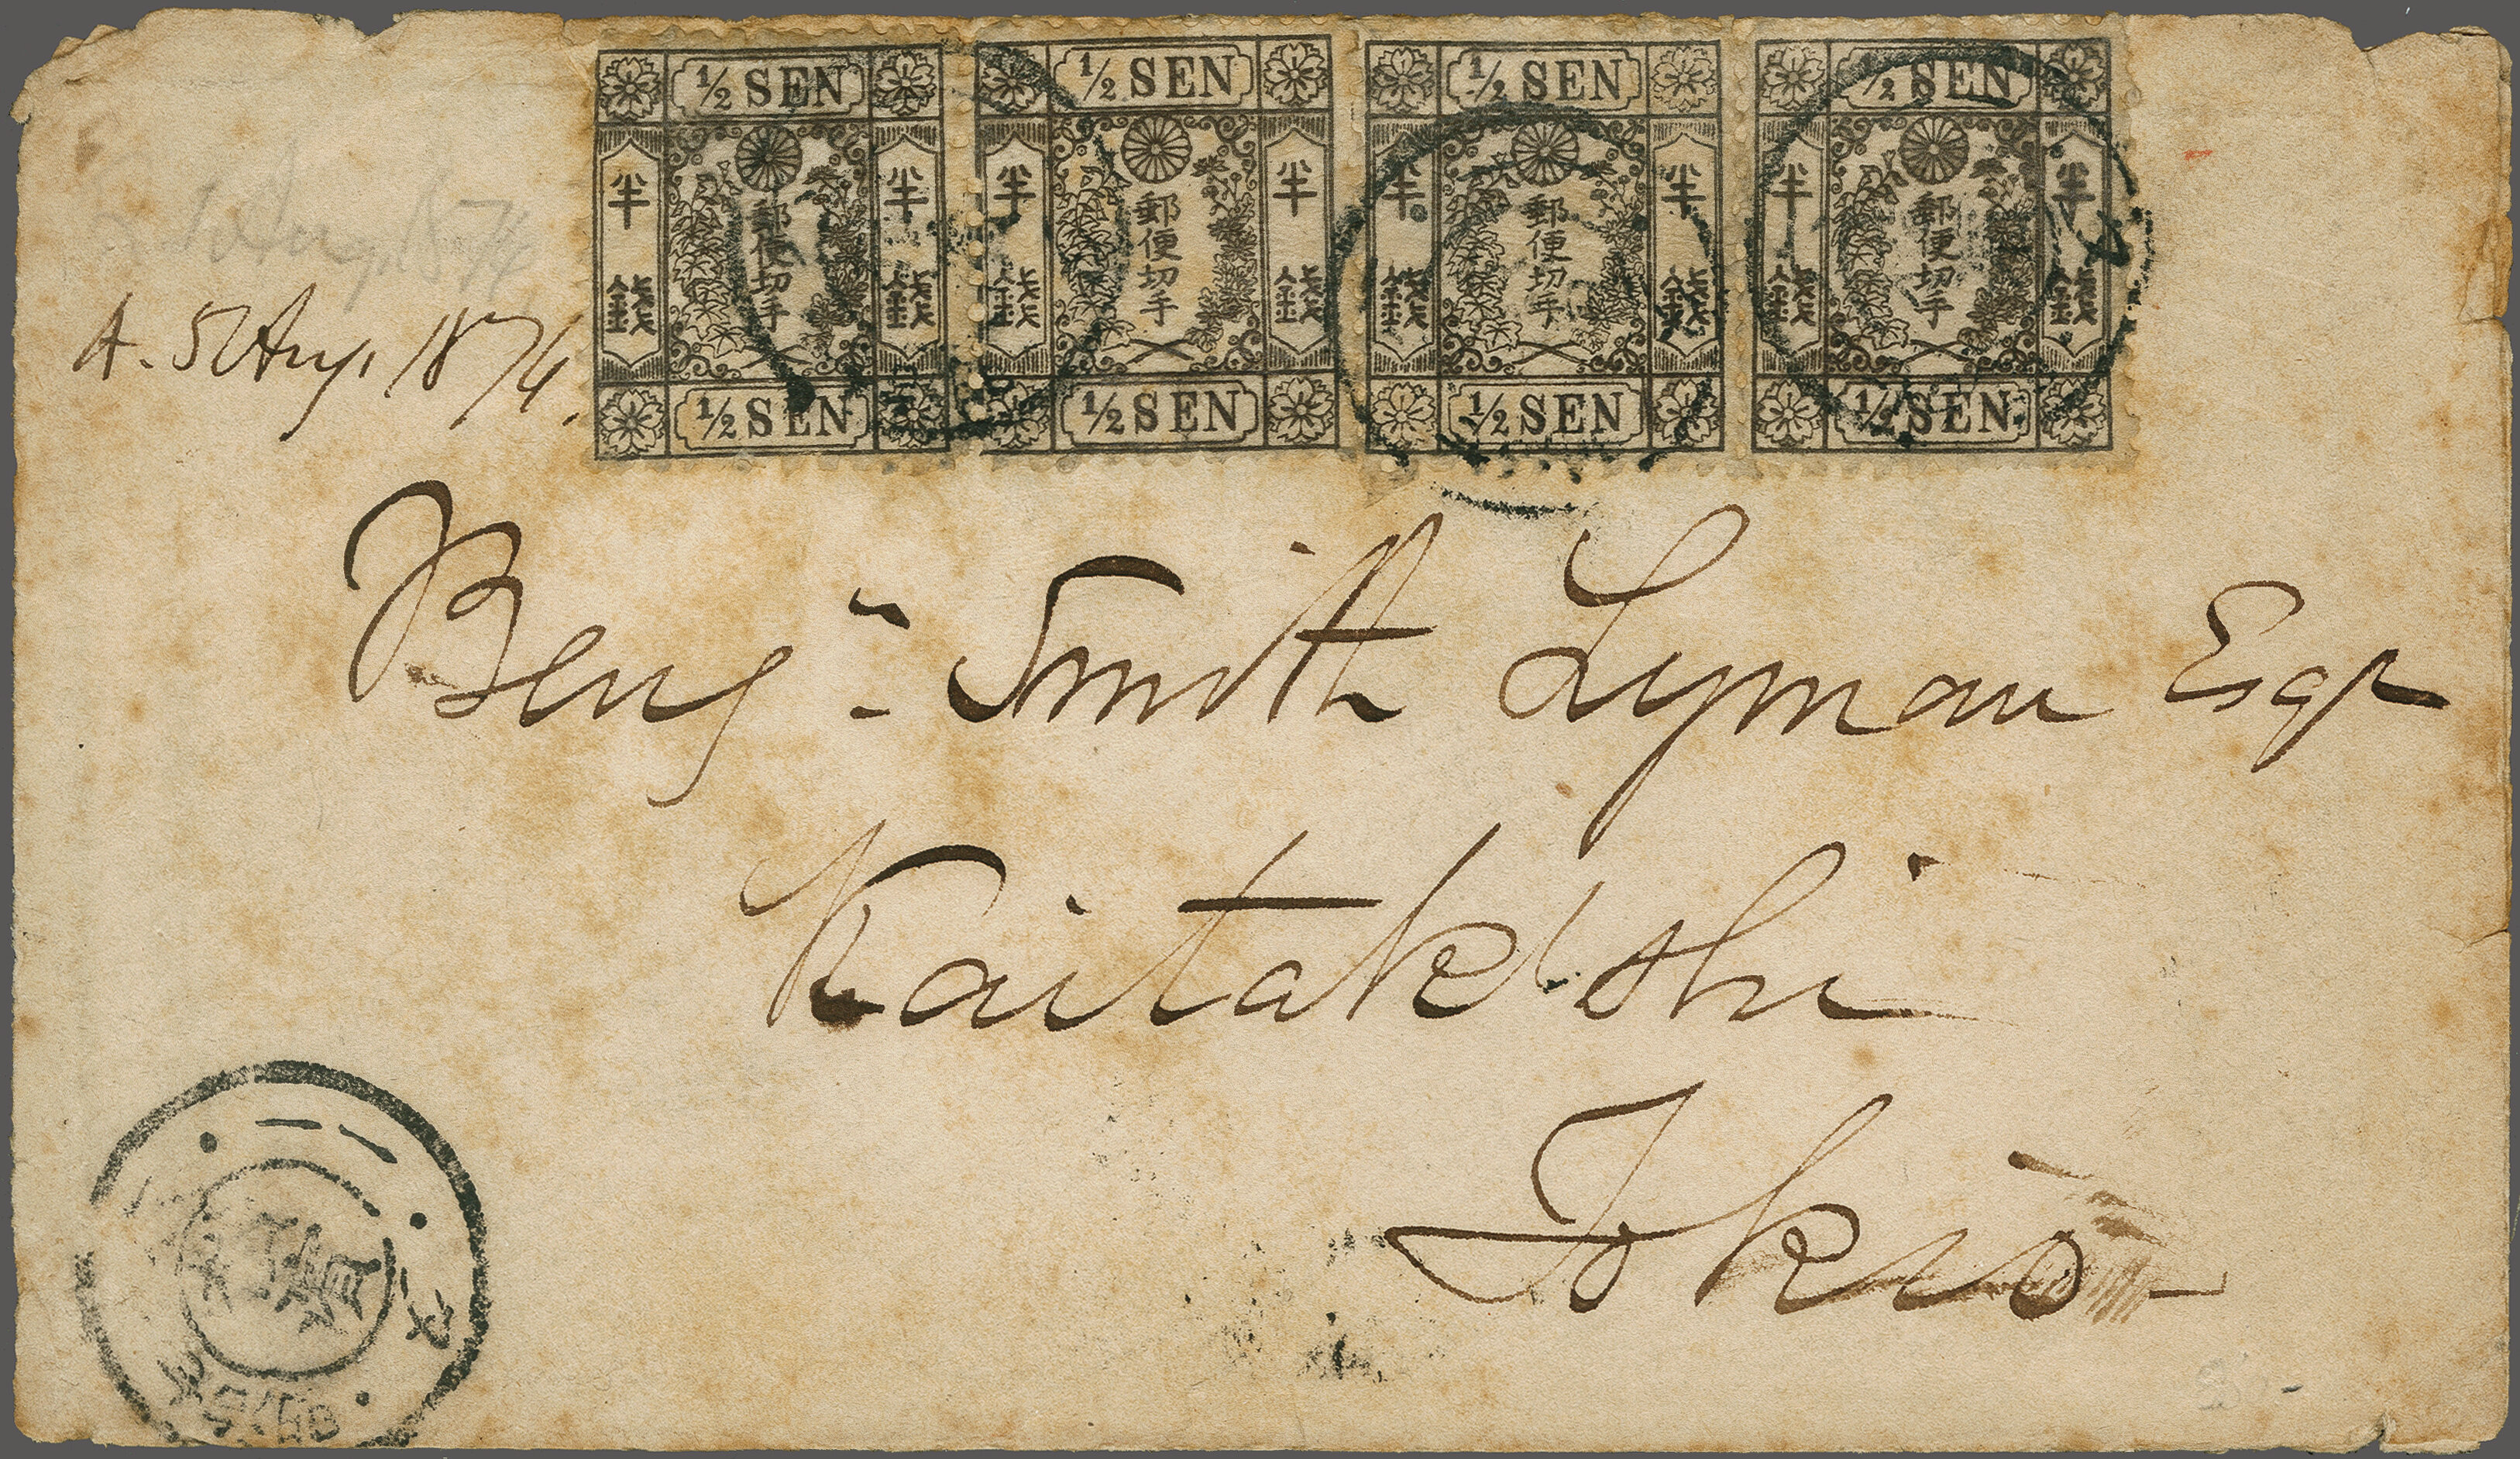 1/2 SEN 1/2 SEN 1/2 SEN 1/2 SEN
半錢 郵便切手 半錢 半錢 郵便切手 半錢 半錢 郵便切手 半錢 半錢 郵便切手 半錢
1/2 SEN 1/2 SEN 1/2 SEN 1/2 SEN
1 Aug 1874
A. 5 Aug. 1874.
Benjn Smith Lyman Esqr
Kaitak'shi
Tokio